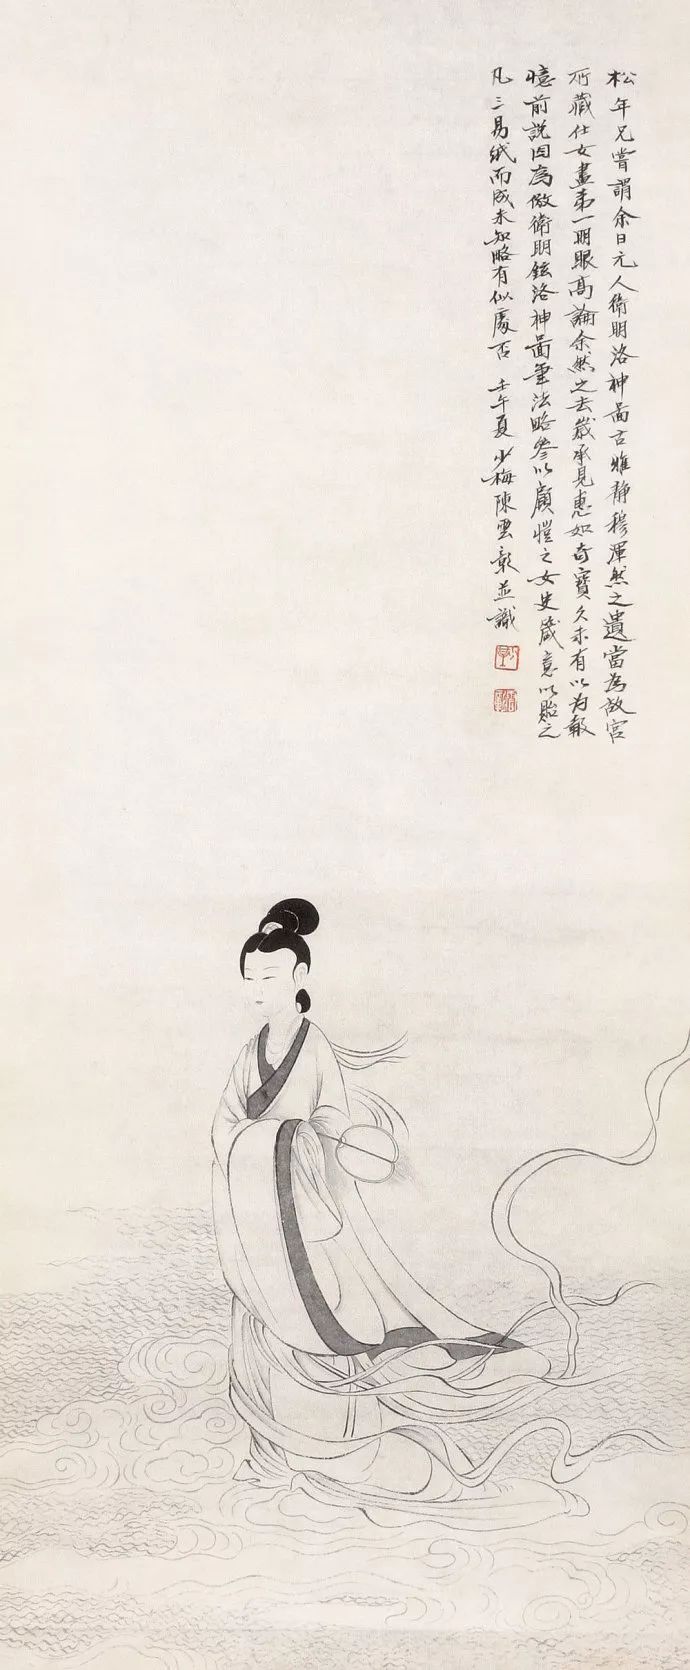 松年兄嘗謂余曰元人衛明洛神圖古雅靜穆渾然之遺當為故宮
所藏仕女畫第一明眼高論余然之去歲承見惠如奇寶久未有以為報
憶前說因為倣衛明鉉洛神圖筆法略參以顧愷之女史箴意以貽之
凡三易紙而成未知略有似處否 壬午夏少梅陳雲彰並識